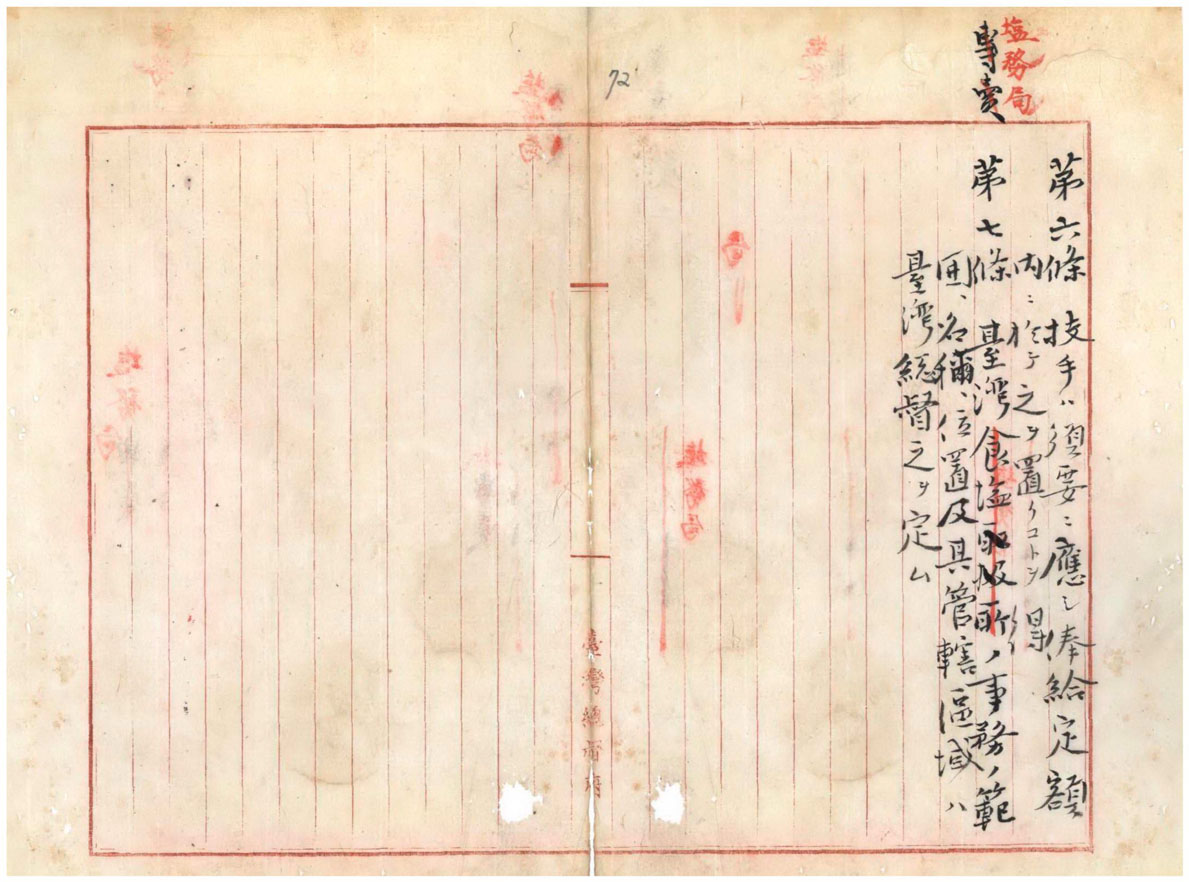 塩務局
專賣
第六條 技手ハ須要ニ應シ俸給定額
内ニ於テ之ヲ置クコトヲ得
第七條 臺灣食塩取扱所ノ事務ノ範
囲、名稱、位置及其管轄區域ハ
臺灣総督之ヲ定ム
72
臺灣總督府
塩務局